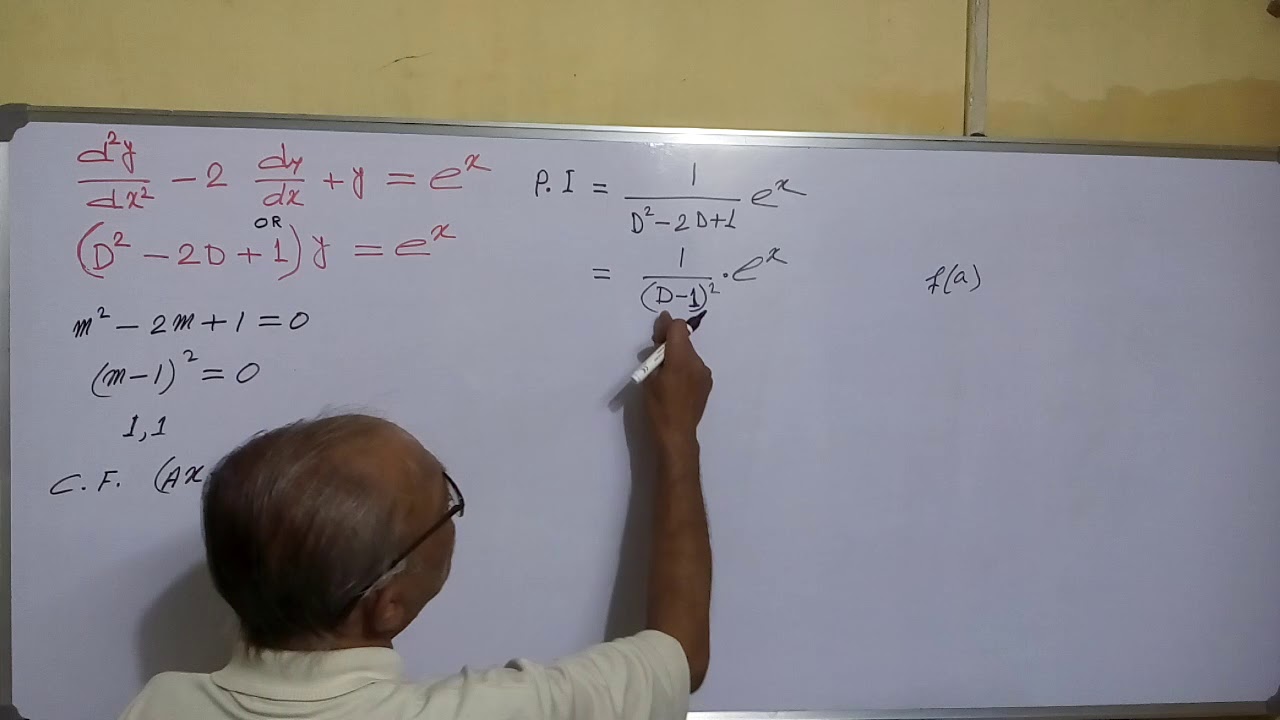 d²y/dx² − 2 dy/dx + y = eˣ
OR
(D² − 2D + 1) y = eˣ
m² − 2m + 1 = 0
(m − 1)² = 0
1, 1
C. F. (Ax
P. I = 1/(D² − 2D + 1) eˣ
= 1/(D − 1)² · eˣ
f(a)